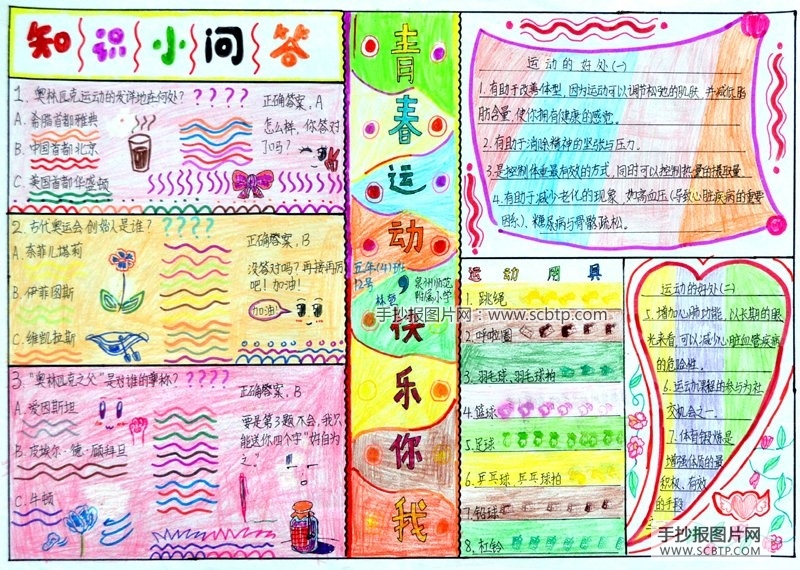 知识小问答
1. 奥林匹克运动的发洋地在何处？????
A. 希腊首都雅典
B. 中国首都北京
C. 美国首都华盛顿
正确答案，A
怎么样，你答对
了吗？
2. 古代奥运会创始人是谁？????
A. 奈菲尔塔莉
B. 伊菲图斯
C. 维凯拉斯
正确答案，B
没答对吗？再接再厉
吧！加油！
加油！
3. "奥林匹克之父"是对谁的尊称？????
A. 爱因斯坦
B. 皮埃尔·德·顾拜旦
C. 牛顿
正确答案，B
要是第3题不会，我只
能送你四个字"好自为
之。
青春运动，快乐你我
五年(4)班
12号
泉州师范
附属小学
运动的好处(一)
1. 有助于改善体型，因为运动可以调节松弛的肌肤，并减低脂
肪含量，使你拥有健康的感觉。
2. 有助于消除精神的坚张与压力。
3. 是控制体重最有效的方式，同时可以控制热量的摄取量
4. 有助于减少老化的现象，如高血压(导致心脏疾病的重要
因素)、糖尿病与骨骼疏松。
运动用具
1. 跳绳
2. 呼啦圈
3. 羽毛球，羽毛球拍
4. 篮球
5. 足球
6. 乒乓球，乒乓球拍
7. 铅球
8. 杠铃
运动的好处(二)
5. 增加心肺功能，以长期的眼
光来看，可以减少心脏血管疾病
的危险性。
6. 运动课程的参与为社
交机会之一。
7. 体育锻炼是
增强体质的最
积极、有效
的手段
手抄报图片网：www.scbtp.com
手抄报图片网
WWW.SCBTP.COM